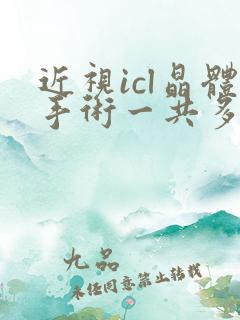 近視icl晶體
手術一共多
九品
未經同意禁止轉載